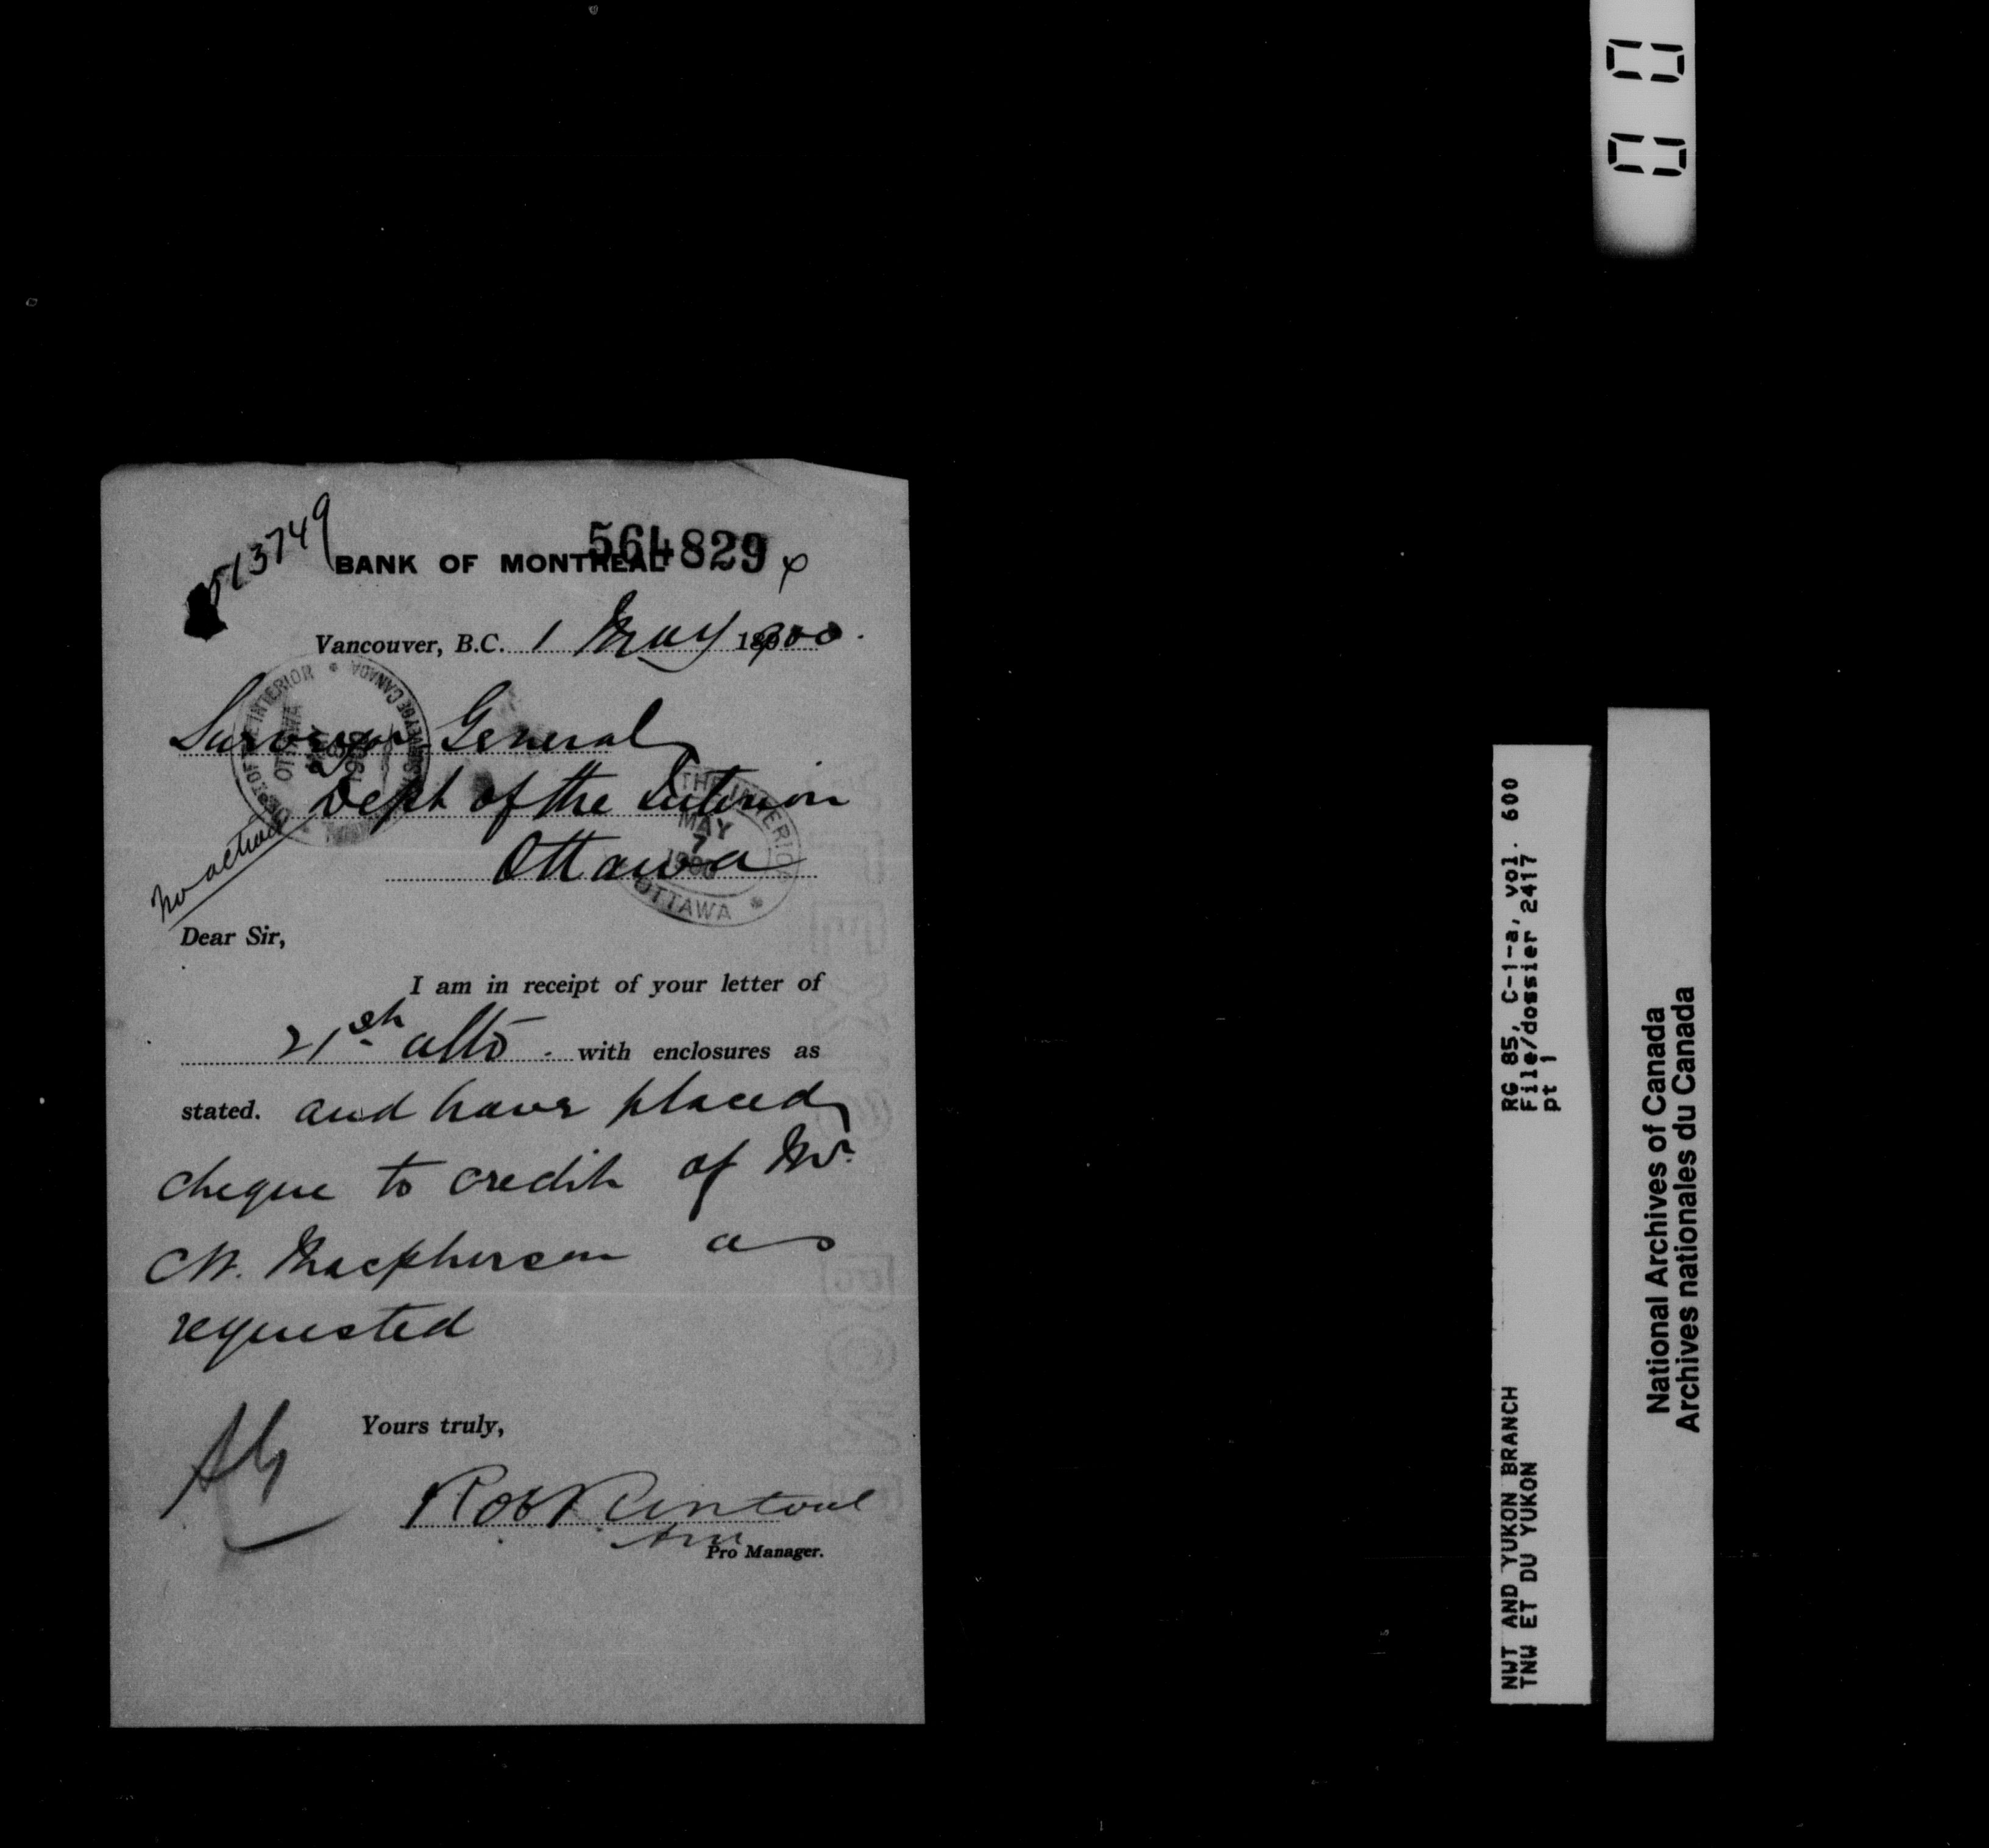 513749
BANK OF MONTREAL
564829
Vancouver, B.C. 1 May 1900.
Surveyor General
Dept of the Interior
Ottawa
No action
DEPT. OF THE INTERIOR
OTTAWA
1900
THE INTERIOR
MAY
7
1900
OTTAWA
Dear Sir,
I am in receipt of your letter of
21st ulto. with enclosures as
stated. and have placed
cheque to credit of Mr.
C.W. Macpherson as
requested
Yours truly,
Pro Manager.
NWT AND YUKON BRANCH
TNW ET DU YUKON
RG 85, C-1-a, vol. 600
File/dossier 2417
pt 1
National Archives of Canada
Archives nationales du Canada